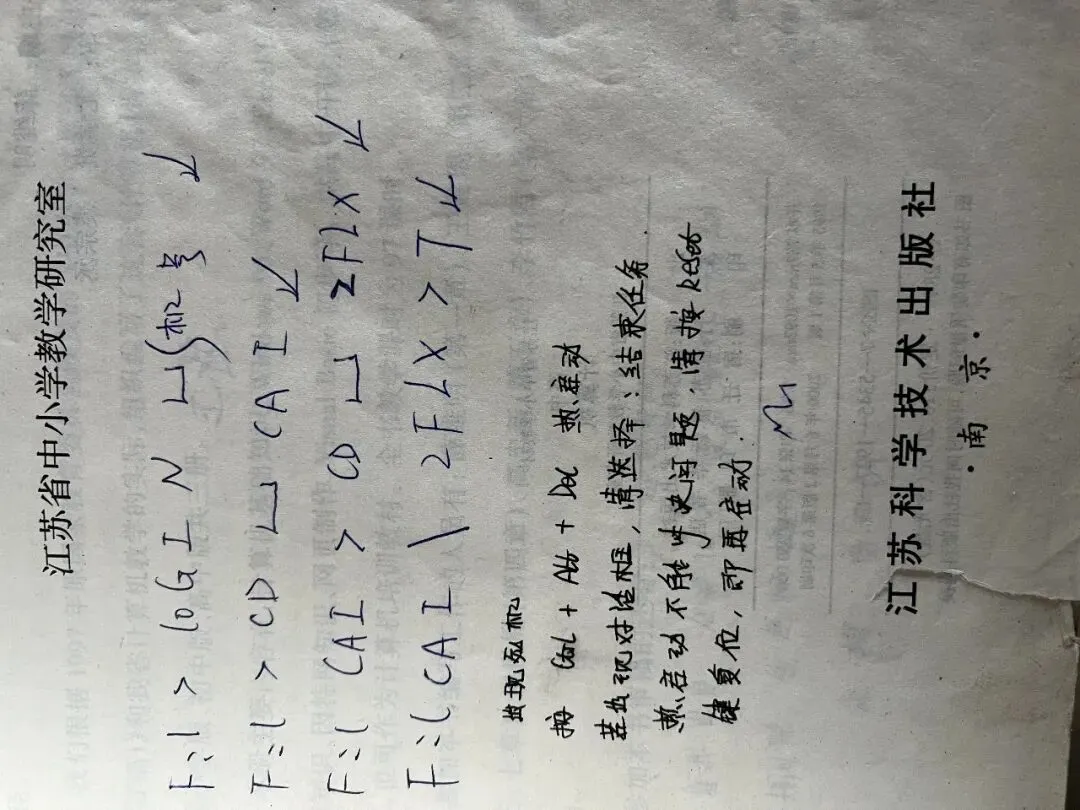 江苏省中小学教学研究室
F:\> LOGIN ␣ 机号 ↙
F:\> CD ␣ CAI ↙
F:\CAI> CD ␣ 2FLX ↙
F:\CAI\2FLX>T ↙
出现死机
按 Ctrl + Alt + Del 热启动
若出现对话框，请选择：结束任务
热启动不能解决问题，请按 Reset
键复位，即再启动.
江苏科学技术出版社
·南 京·